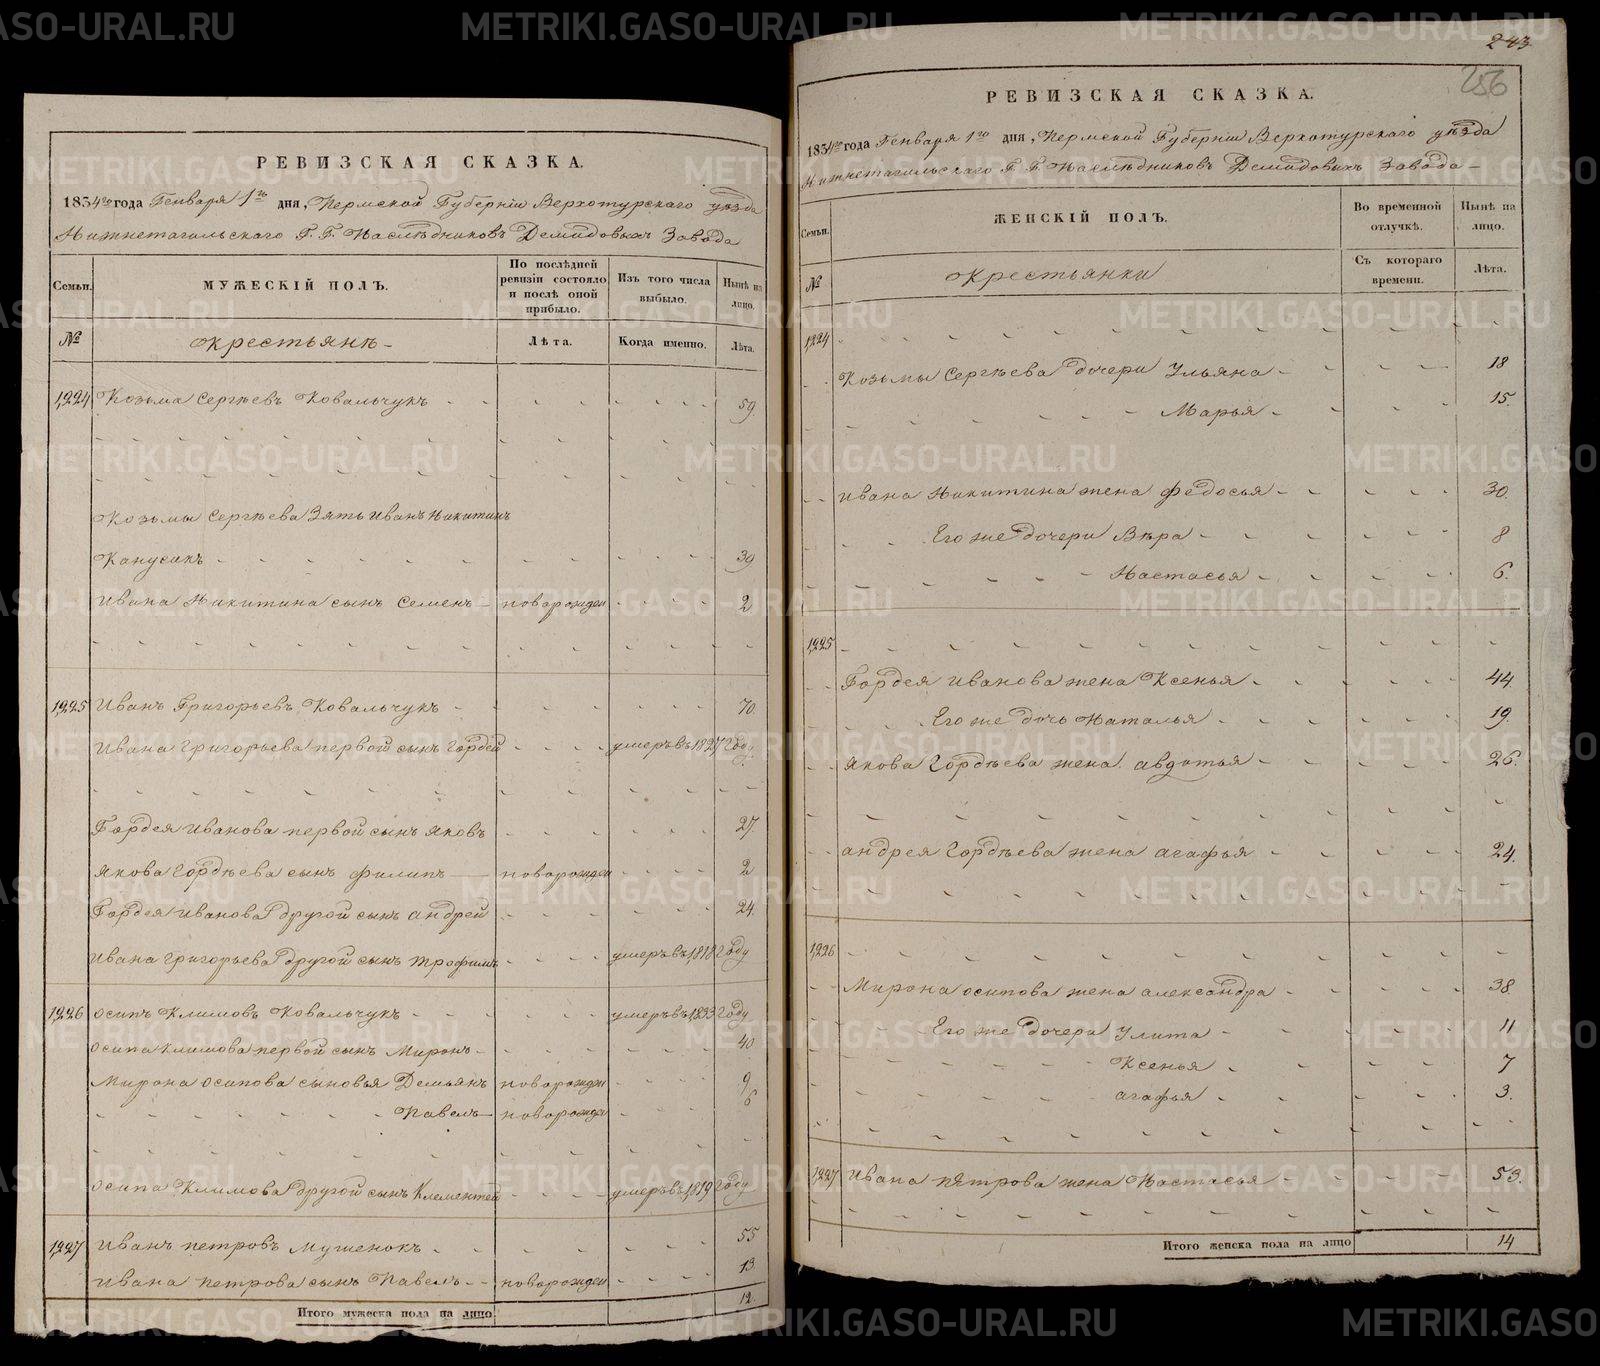 РЕВИЗСКАЯ СКАЗКА.
1834го года Генваря 1го дня, Пермской Губернiи Верхотурскаго уѣзда
Нижнетагильскаго Г. Г. Наслѣдниковъ Демидовыхъ Завода
Семьи.
МУЖЕСКІЙ ПОЛЪ.
По послѣдней ревизіи состояло и послѣ оной прибыло.
Изъ того числа выбыло.
Нынѣ на лицо.
№
Крестьянѣ
Лѣта.
Когда именно.
Лѣта.
1224 Козьма Сергѣевъ Ковальчукъ 59.
Козьмы Сергѣева Зять Иванъ Никитинъ
Канусикъ 39
Ивана Никитина сынъ Семенъ новорожден 2
1225 Иванъ Григорьевъ Ковальчукъ 70.
Ивана Григорьева первой сынъ Гордей умеръ въ 1827 Году.
Гордея Иванова первой сынъ Яковъ 27.
Якова Гордѣева сынъ Филипъ новорожден 2
Гордея Иванова другой сынъ Андрей 24.
Ивана Григорьева другой сынъ Трофимъ умеръ въ 1818 Году
1226 Осипъ Климовъ Ковальчукъ умеръ въ 1833 Году
Осипа Климова первой сынъ Миронъ 40
Мирона Осипова сыновья Демьянъ новорожден 9
Павелъ новорожден 6
Осипа Климова другой сынъ Клементей умеръ въ 1819 Году
1227 Иванъ Петровъ Мушенокъ 55
Ивана Петрова сынъ Павелъ новорожден 13
Итого мужеска пола на лицо 12.
243
256
РЕВИЗСКАЯ СКАЗКА.
1834го года Генваря 1го дня, Пермской Губернiи Верхотурскаго уѣзда
Нижнетагильскаго Г. Г. Наслѣдниковъ Демидовыхъ Завода
Семьи.
ЖЕНСКІЙ ПОЛЪ.
Во временной отлучкѣ.
Нынѣ на лицо.
№
Крестьянки
Съ котораго времени.
Лѣта.
1224
Козьмы Сергѣева дочери Ульяна 18
Марья 15.
Ивана Никитина жена Федосья 30.
Его же дочери Вѣра 8
Настасья 6.
1225
Гордея Иванова жена Ксенья 44.
Его же дочь Наталья 19.
Якова Гордѣева жена Авдотья 26.
Андрея Гордѣева жена Агафья 24.
1226
Мирона Осипова жена Александра 38.
Его же дочери Улита 11
Ксенья 7
Агафья 3.
1227 Ивана Пятрова жена Настасья 53.
Итого женска пола на лицо 14
METRIKI.GASO-URAL.RU